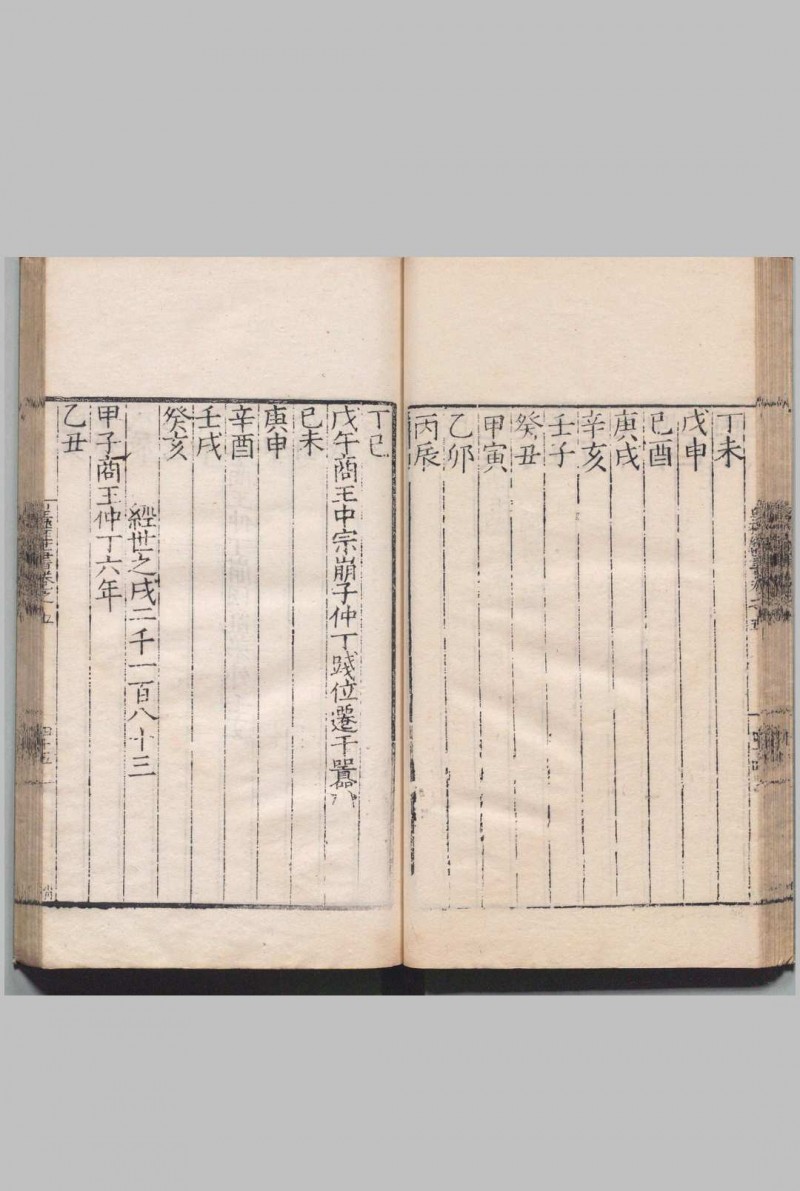 丁未
戊申
己酉
庚戌
辛亥
壬子
癸丑
甲寅
乙卯
丙辰
丁巳
戊午商王中宗崩子仲丁踐位遷于囂
己未
庚申
辛酉
壬戌
癸亥
經世之戌二千一百八十三
甲子商王仲丁六年
乙丑